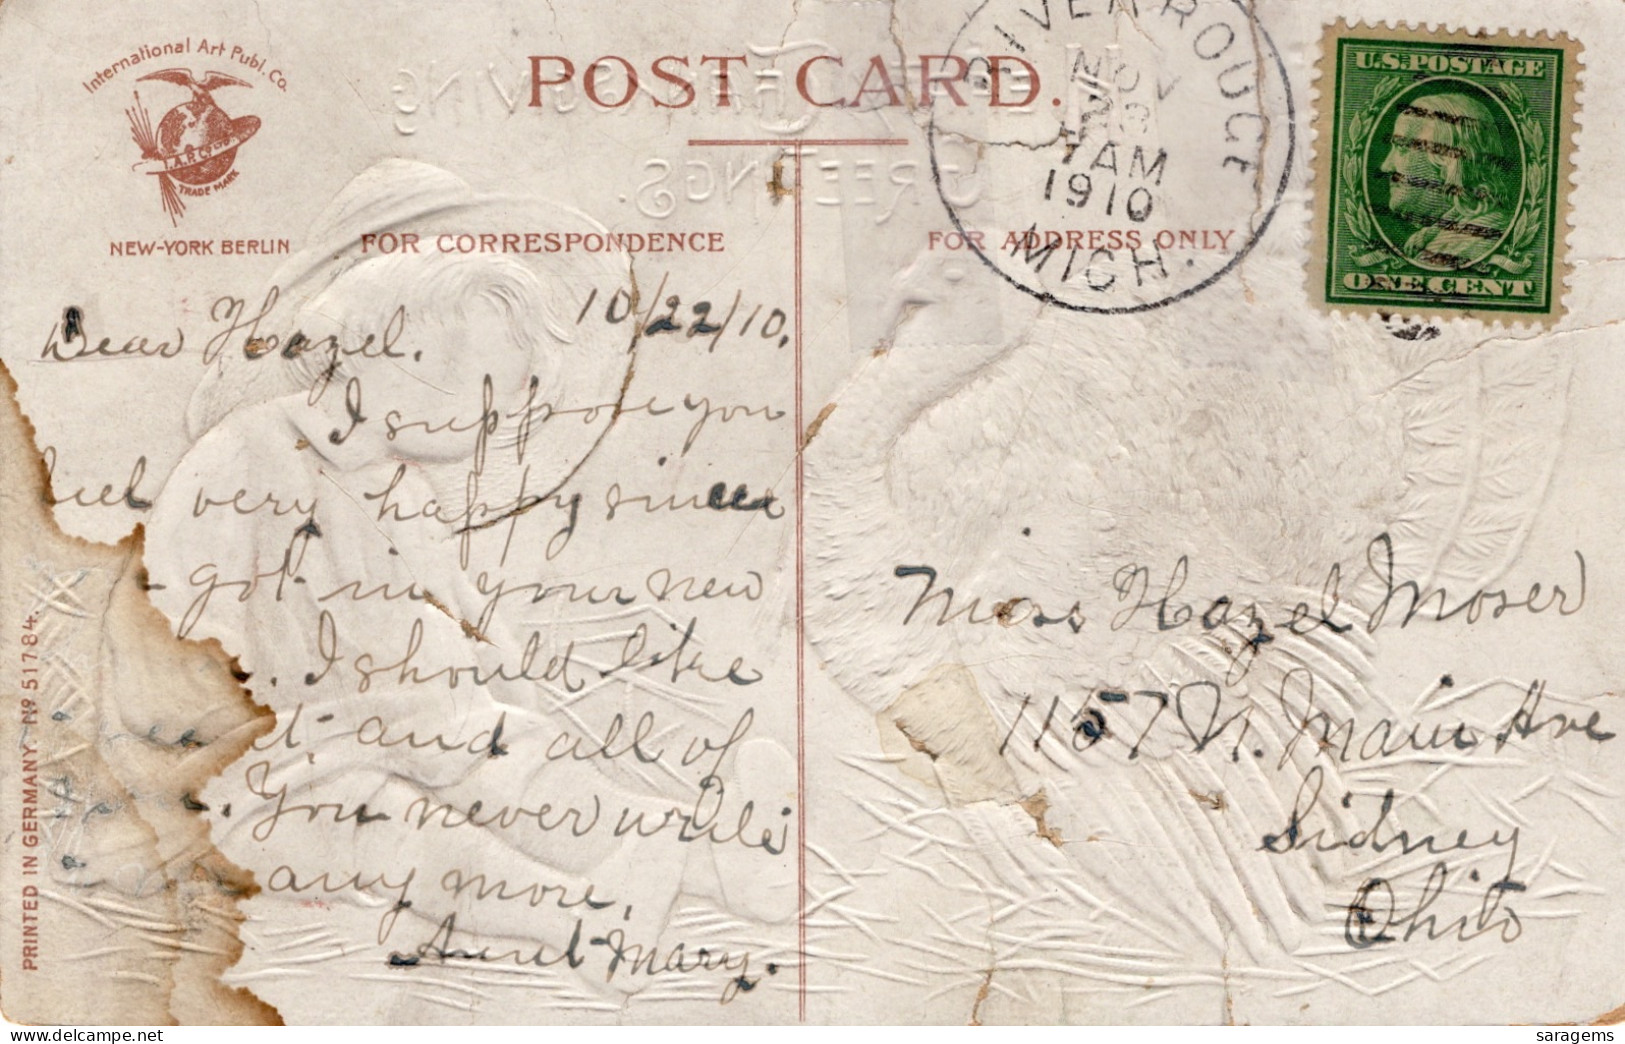 International Art Publ. Co.
I.A.P. Co.
TRADE MARK
NEW-YORK BERLIN
POST CARD.
THANKSGIVING
GREETINGS.
FOR CORRESPONDENCE
FOR ADDRESS ONLY
RIVER ROUGE
NOV
23
7 AM
1910
MICH.
U.S. POSTAGE
ONE CENT
10/22/10.
Dear Hazel.
I suppose you
feel very happy since
got in your new
. I should like
and all of
. You never write
any more.
Aunt Mary.
Miss Hazel Moser
1157 N. Main Ave
Sidney
Ohio
PRINTED IN GERMANY. No. 51784.
saragems